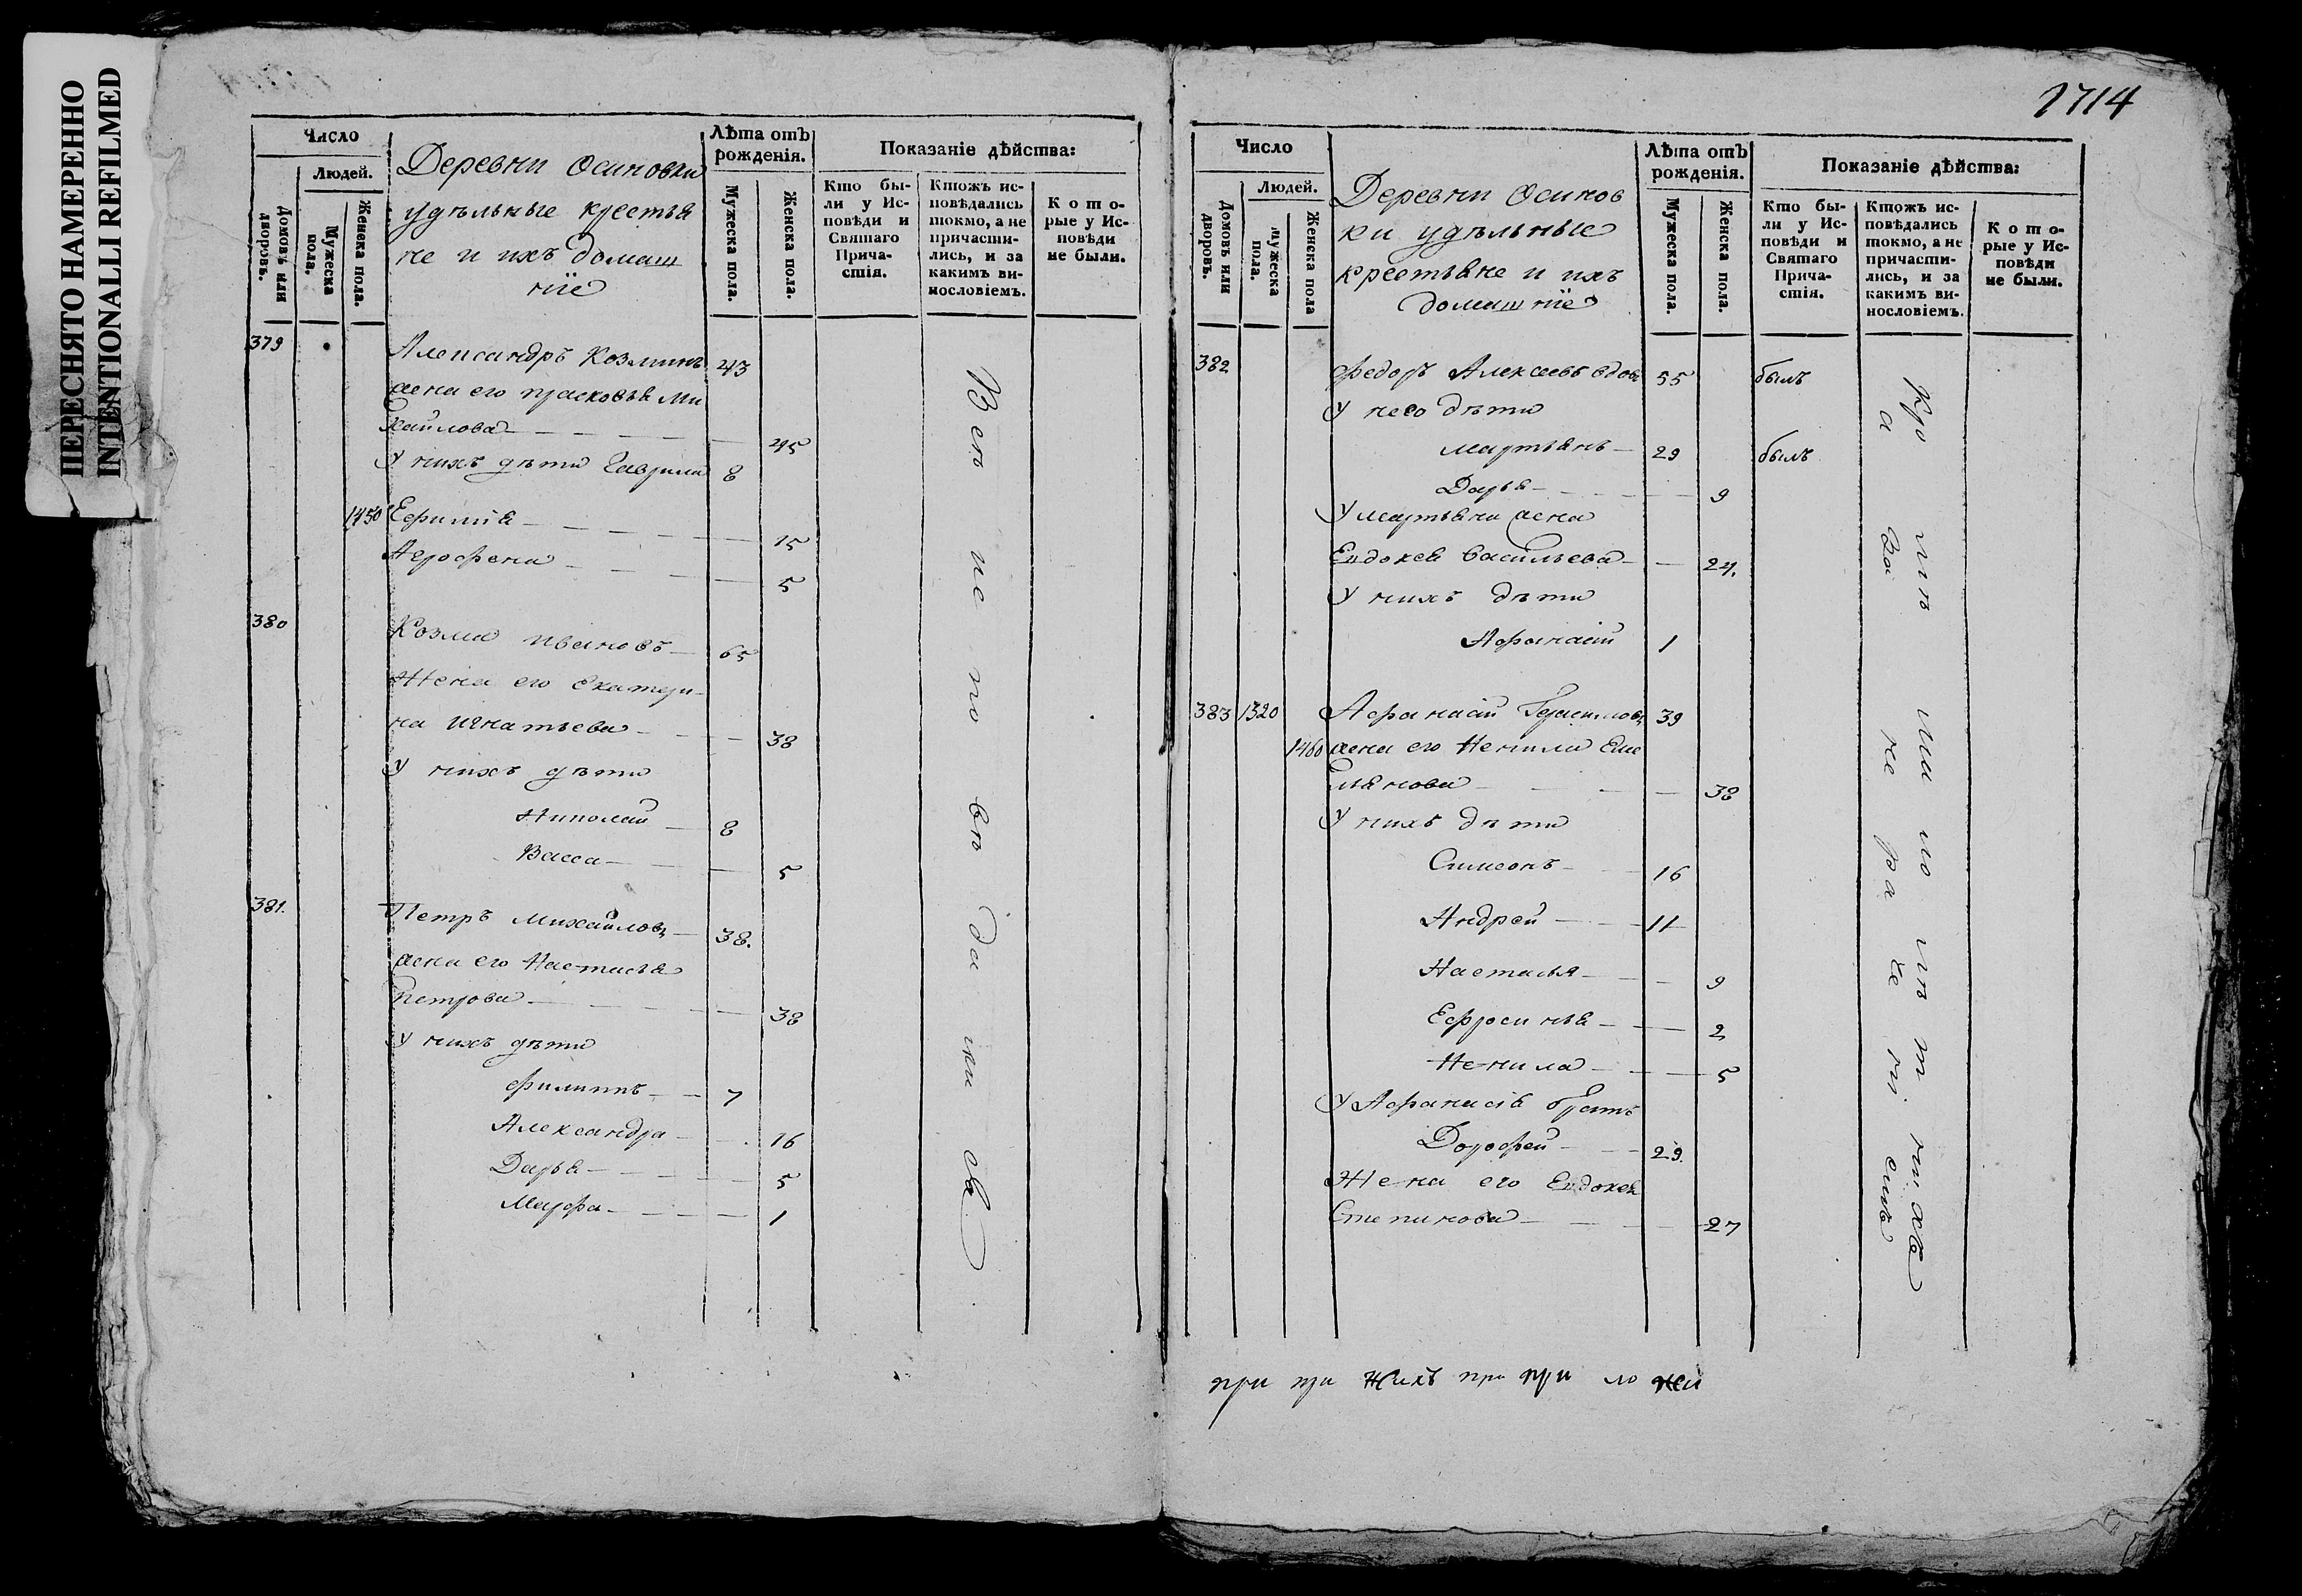 ПЕРЕСНЯТО НАМЕРЕННО
INTENTIONALLI REFILMED
Число
Людей.
Домовъ или дворовъ.
Мужеска пола.
Женска пола.
Деревни Осиновки
удѣльные крестья
не и ихъ домаш
ніе
Лѣта отъ рожденія.
Мужеска пола.
Женска пола.
Показаніе дѣйства:
Кто бы-
ли у Ис-
повѣди и
Святаго
Прича-
стія.
Ктожъ ис-
повѣдались
токмо, а не
причасти-
лись, и за
какимъ ви-
нословіемъ.
К о т о-
рые у Ис-
повѣди
не были.
379 Александръ Козминъ 43
жена его Прасковья Ми
хайлова 45
У нихъ дѣти Гаврила 8
1450 Ефимія 15
Агрофена 5
380 Козма Ивановъ 65
Жена его Екатери-
на Игнатьева 38
У нихъ дѣти
Николай 8
Васса 5
381. Петръ Михайловъ 38.
жена его Настасья
Петрова 38
У нихъ дѣти
Филиппъ 7
Александра 16
Дарья 5
Марфа 1
1714
Число
Людей.
Домовъ или дворовъ.
Мужеска пола.
Женска пола
Деревни Осинов
ки удѣльные
крестьяне и ихъ
домашніе
Лѣта отъ рожденія.
Мужеска пола.
Женска пола.
Показаніе дѣйства:
Кто бы-
ли у Ис-
повѣди и
Святаго
Прича-
стія.
Ктожъ ис-
повѣдались
токмо, а не
причасти-
лись, и за
какимъ ви-
нословіемъ.
К о т о-
рые у Ис-
повѣди
не были.
382 Федоръ Алексеевъ вдовъ 55 былъ
У него дѣти
Мартьянъ 29 былъ
Дарья 9
У Мартьяна жена
Евдокея Васильева 24.
У нихъ дѣти
Афанасій 1
383 1320 Афанасій Герасимовъ 39
1460 жена его Ненила Еме
льянова 38
У нихъ дѣти
Симеонъ 16
Андрей 11
Настасья 9
Ефросинья 2
Ненила 5
У Афанасія братъ
Дорофей 29.
Жена его Евдокея
Степанова 27